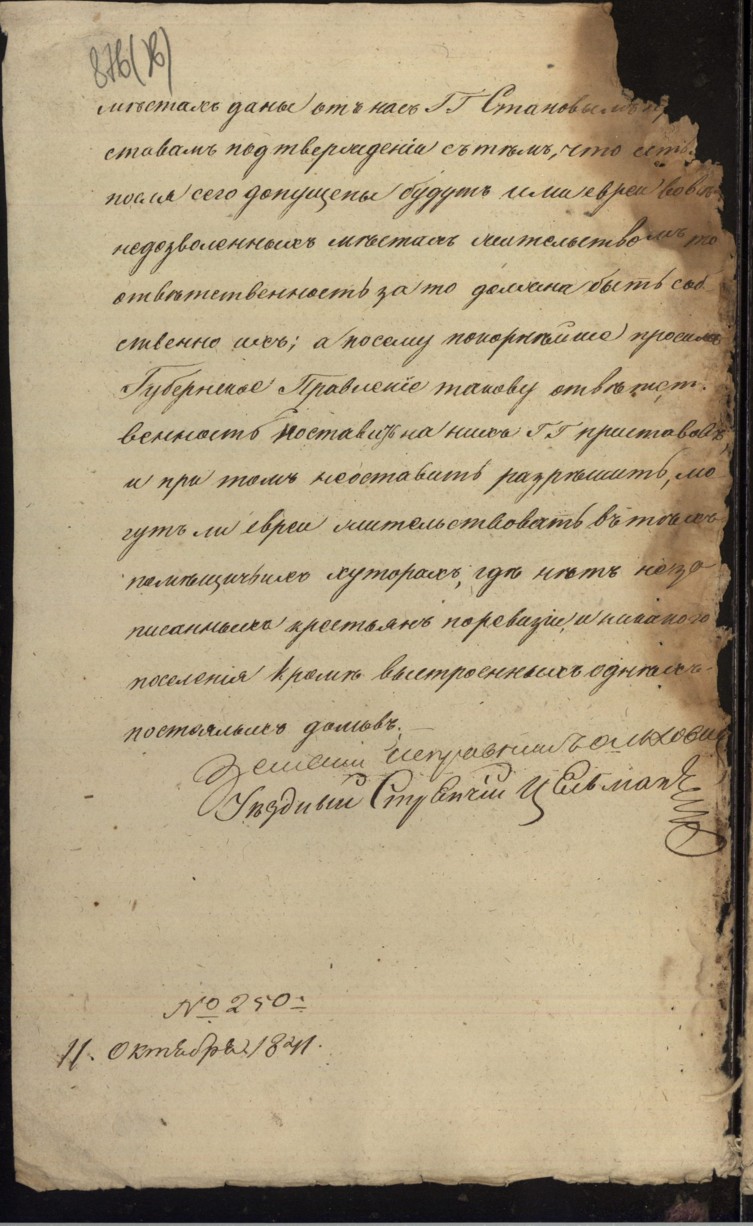 876(Об)
мѣстахъ даны отъ насъ ГГ Становымъ
ставамъ подтвержденія сътѣмъ, что
после сего допущены будутъ ими евреи
недозволенныхъ мѣстахъ жительство то
отвѣтственность за то должна быть соб
ственно ихъ; а посему покорнѣйше просимъ
Губернское Правленіе такову отвѣтст
венность поставить на нихъ ГГ приставовъ
и при томъ неоставить разрѣшить, мо
гутъ ли евреи жительствовать вътѣхъ
помѣщичьихъ хуторахъ, гдѣ нѣтъ
писанныхъ крестьянъ поревизіи, и никакого
поселенія кромѣ выстроенныхъ однихъ
постоялыхъ домовъ.
Земскій Исправникъ
Уѣздный Стряпчій Цельман
№ 250:
11. Октября 1841.